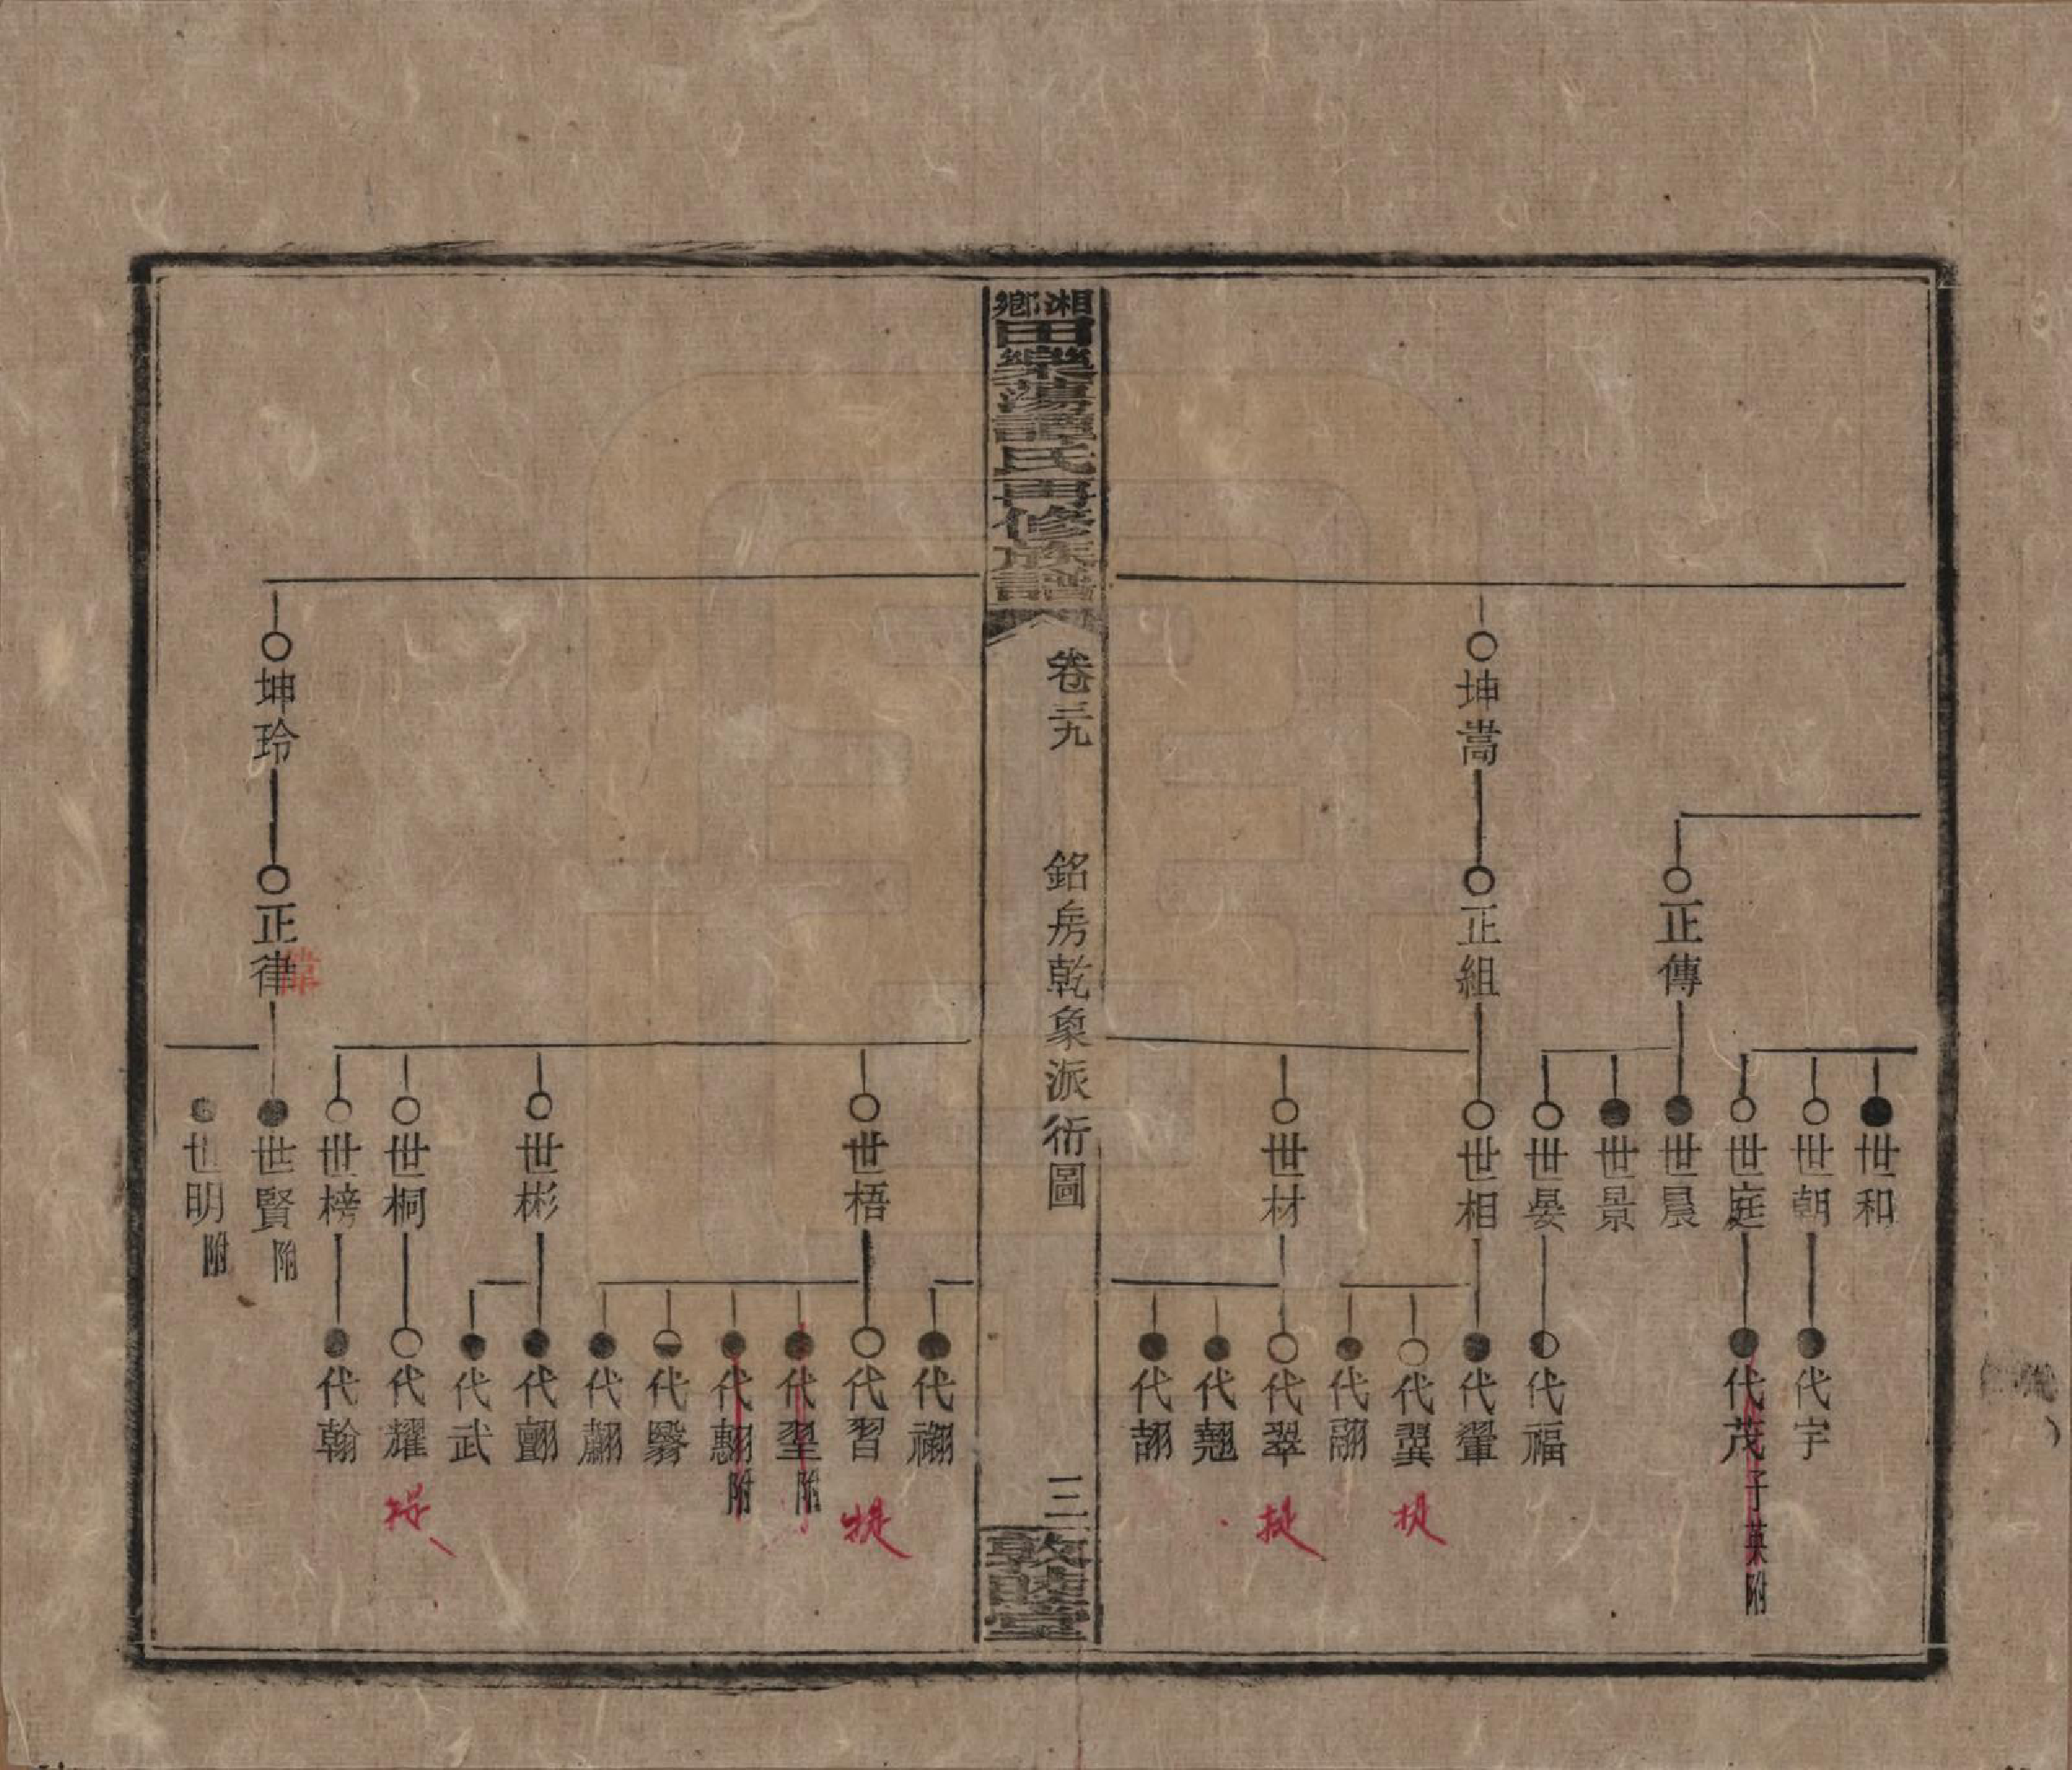 世和
世朝
代宇
世庭
代茂
子英附
正傳
世晨
世景
世晏
代福
坤嵩
正組
世相
代翬
代翼
代翮
世材
代翠
代翹
代翓
湘鄉
田樂蕩譚氏再修族譜
卷三九
銘房乾象派衍圖
三
敦睦堂
世梧
代習
代翌附
代翿
世彬
代武
世桐
代耀
世榜
代翰
坤玲
正律
世賢附
世明附
提
提
提
提